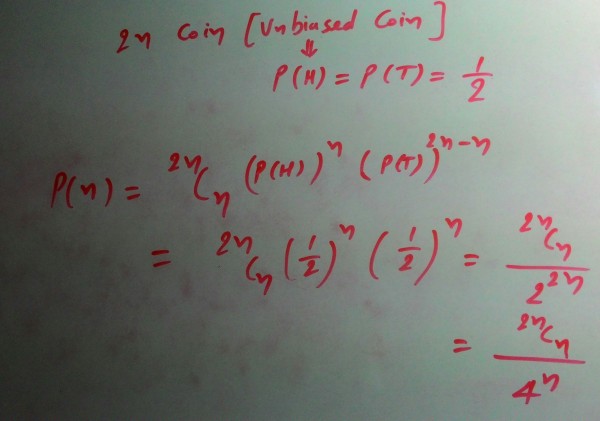 2n Coin [Unbiased Coin]
⇓
P(H) = P(T) = 1/2
P(n) = ²ⁿCₙ (P(H))ⁿ (P(T))²ⁿ⁻ⁿ
= ²ⁿCₙ (1/2)ⁿ (1/2)ⁿ = ²ⁿCₙ / 2²ⁿ
= ²ⁿCₙ / 4ⁿ